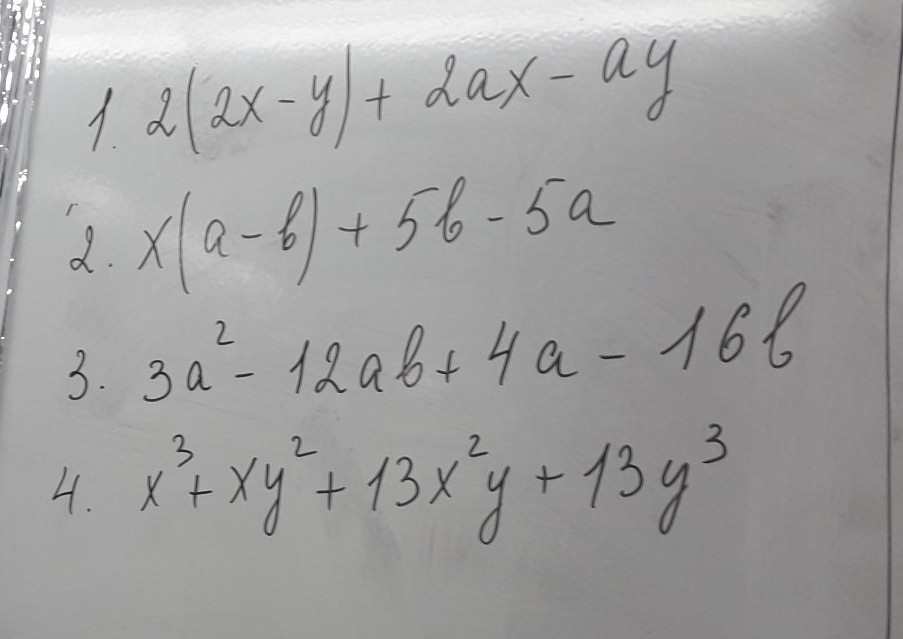 1. 2(2x - y) + 2ax - ay
2. x(a - b) + 5b - 5a
3. 3a² - 12ab + 4a - 16b
4. x³ + xy² + 13x²y + 13y³